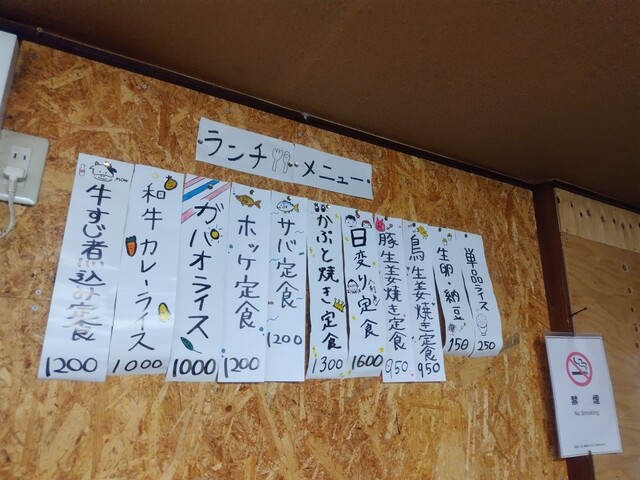 ランチ メニュー
牛すじ煮込み定食
1200
和牛カレーライス
1000
ガパオライス
1000
ホッケ定食
1200
サバ定食
1200
かぶと焼き定食
1300
日変り定食
1600
豚生姜焼き定食
950
鳥生姜焼き定食
950
生卵・納豆
150
単品ライス
250
禁煙
No Smoking